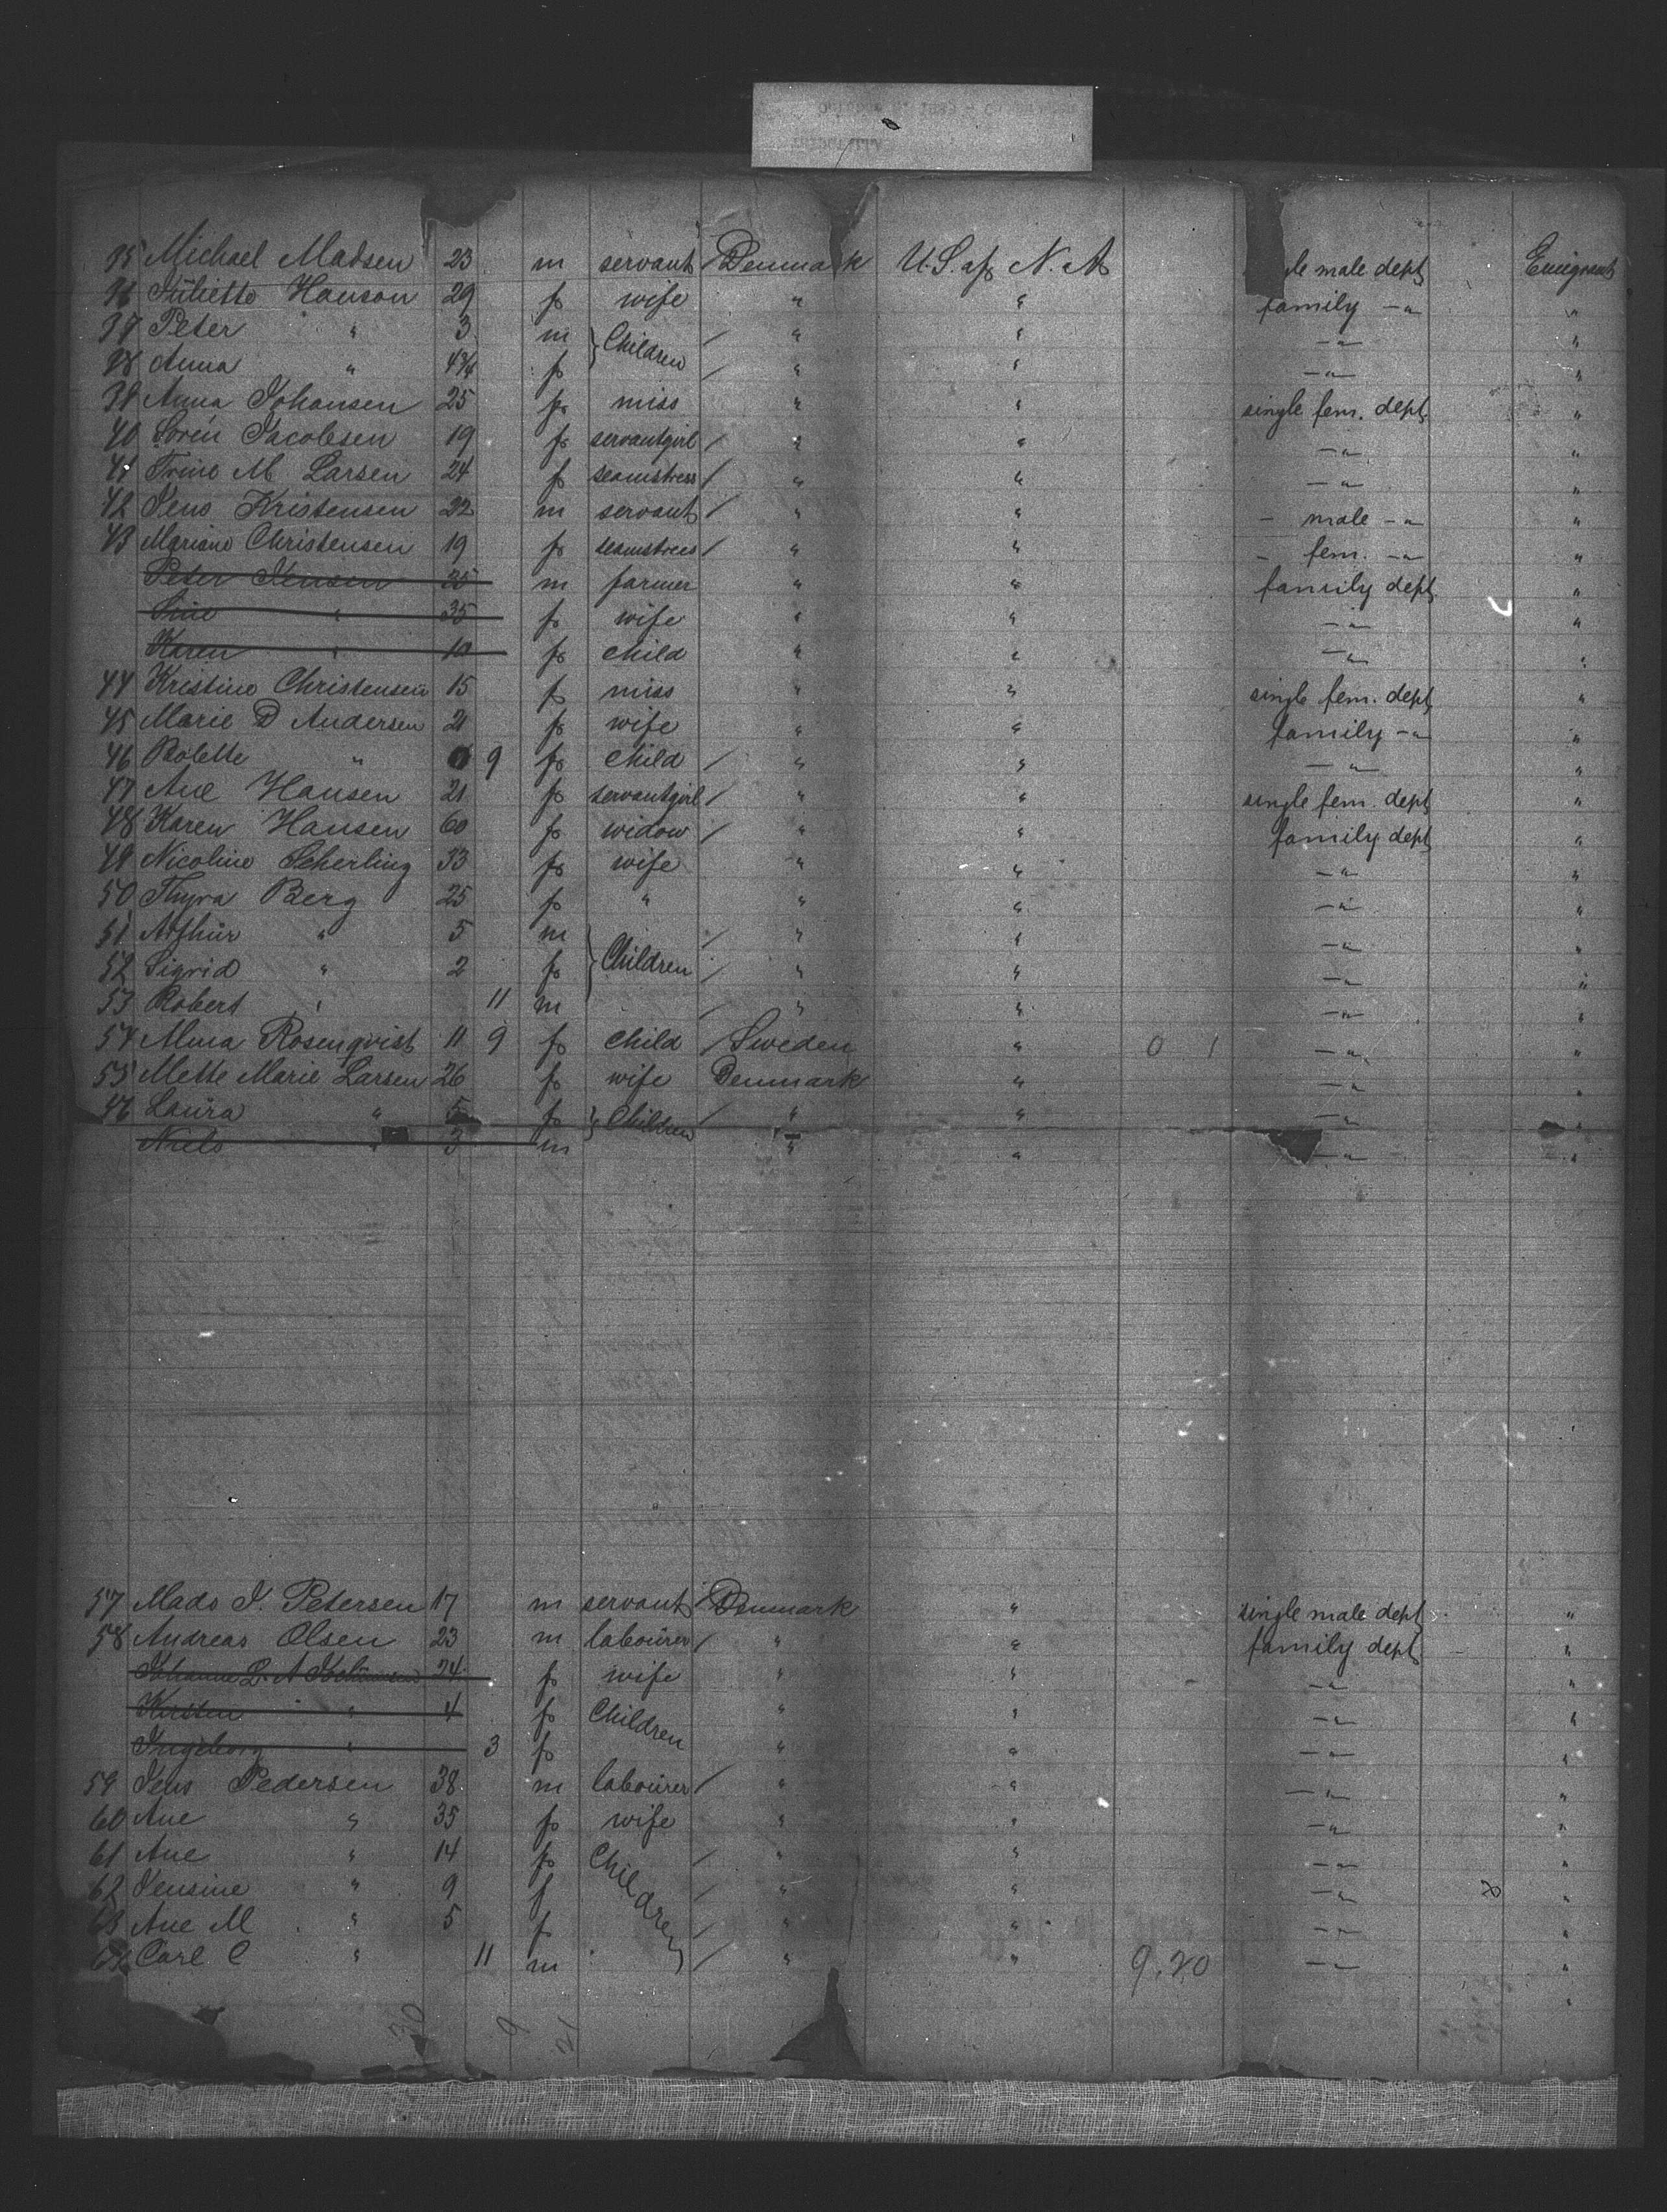 35 Michael Madsen 23 m servant / Denmark U.S. of N. A. le male dept. Emigrant
36 Juliette Hanson 29 f wife " " family -"- "
37 Peter " 3 m } Children / " " -"- "
38 Anna " 4¾ f / " " -"- "
39 Anna Johansen 25 f miss " " single fem. dept. "
40 Soren Jacobsen 19 f servantgirl / " " -"- "
41 Trine M Larsen 24 f seamstress / " " -"- "
42 Jens Kristensen 22 m servant / " " - male -"- "
43 Mariane Christensen 19 f seamstress / " " - fem. -"- "
Peter Jensen 35 m farmer " " family dept. "
Sine " 35 f wife " " -"- "
Karen " 10 f child " " -"- "
44 Kristine Christensen 15 f miss " " single fem. dept. "
45 Marie D Andersen 21 f wife " " family -"- "
46 Bolette " 9 f child / " " -"- "
47 Ane Hansen 21 f servantgirl / " " single fem. dept. "
48 Karen Hansen 60 f widow / " " family dept. "
49 Nicoline Scherling 33 f wife " " -"- "
50 Thyra Berg 25 f " " " -"- "
51 Arthur " 5 m } Children / " " -"- "
52 Sigrid " 2 f / " " -"- "
53 Robert " 11 m / " " -"- "
54 Alma Rosenqvist 11 9 f child / Sweden " 0 1 -"- "
55 Mette Marie Larsen 26 f wife Denmark " -"- "
46 Laura " 5 f } Children / " " -"- "
Niels " 3 m " " -"- "
57 Mads J. Petersen 17 m servant / Denmark " single male dept. "
58 Andreas Olsen 23 m labourer / " " family dept. "
Johanne L. A 24 f wife " " -"- "
Kirsten " 4 f Children " " -"- "
Ingeborg " 3 f " " -"- "
59 Jens Pedersen 38 m labourer / " " -"- "
60 Ane " 35 f wife " " -"- "
61 Ane " 14 f Children / " " -"- "
62 Jensine " 9 f / " " -"- "
63 Ane M " 5 f / " " -"- "
64 Carl C " 11 m / " " 9.20 -"- "
30 9 21